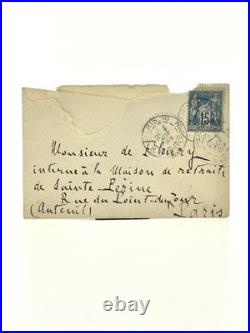 15
Monsieur de
interné à la Maison de retraite
de Sainte-Périne
Rue du Point-du-Jour
(Auteuil) Paris